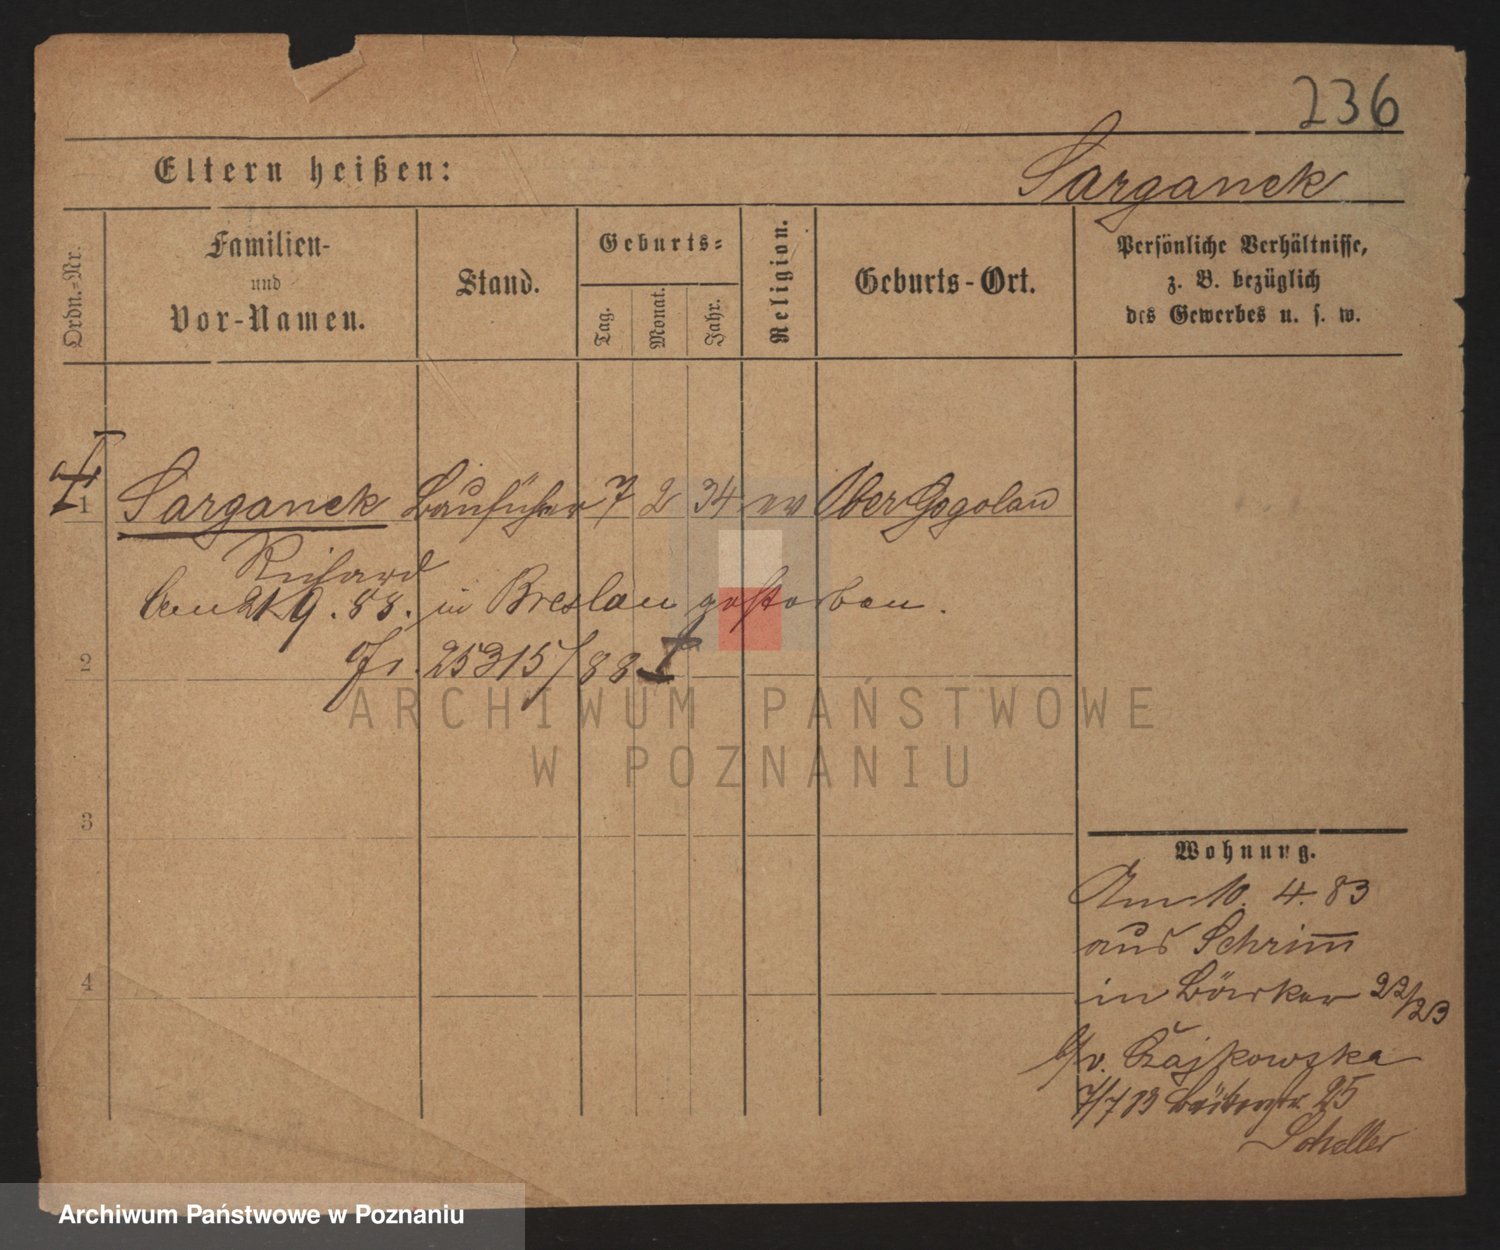 236
Eltern heißen:
Sarganek
Ordn.-Nr.
Familien-
und
Vor-Namen.
Stand.
Geburts-
Tag.
Monat.
Jahr.
Religion.
Geburts-Ort.
Persönliche Verhältnisse,
z. B. bezüglich
des Gewerbes u. s. w.
1 Sarganek Bauführer 7 2 34 ev Ober Gogolau
Richard
Am 21 9. 88. in Breslau gestorben.
25315/88
2
3
4
Wohnung.
Am 10. 4. 83
aus Schrimm
in Bäcker 22/23
b/ v. Czajkowska
7/7 83 Bäckerstr 25
Scheller
ARCHIWUM PAŃSTWOWE
W POZNANIU
Archiwum Państwowe w Poznaniu